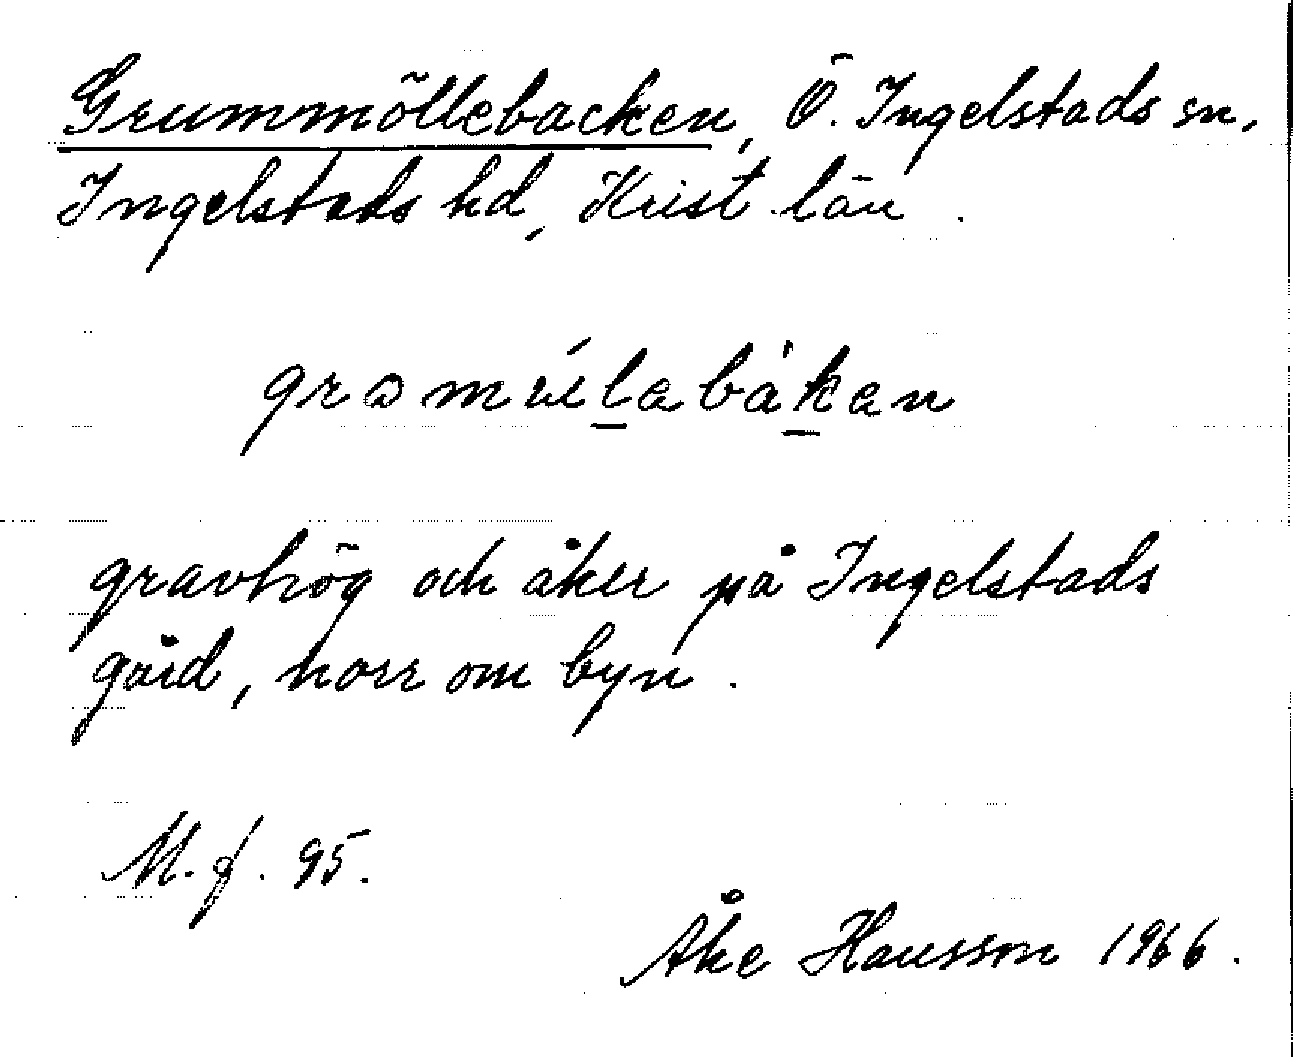 Grummöllebacken, Ö. Ingelstads sn,
Ingelstads hd, Krist län.
gravhög och åker på Ingelstads
gård, norr om byn.
M. f. 95.
Åke Hansson 1966.